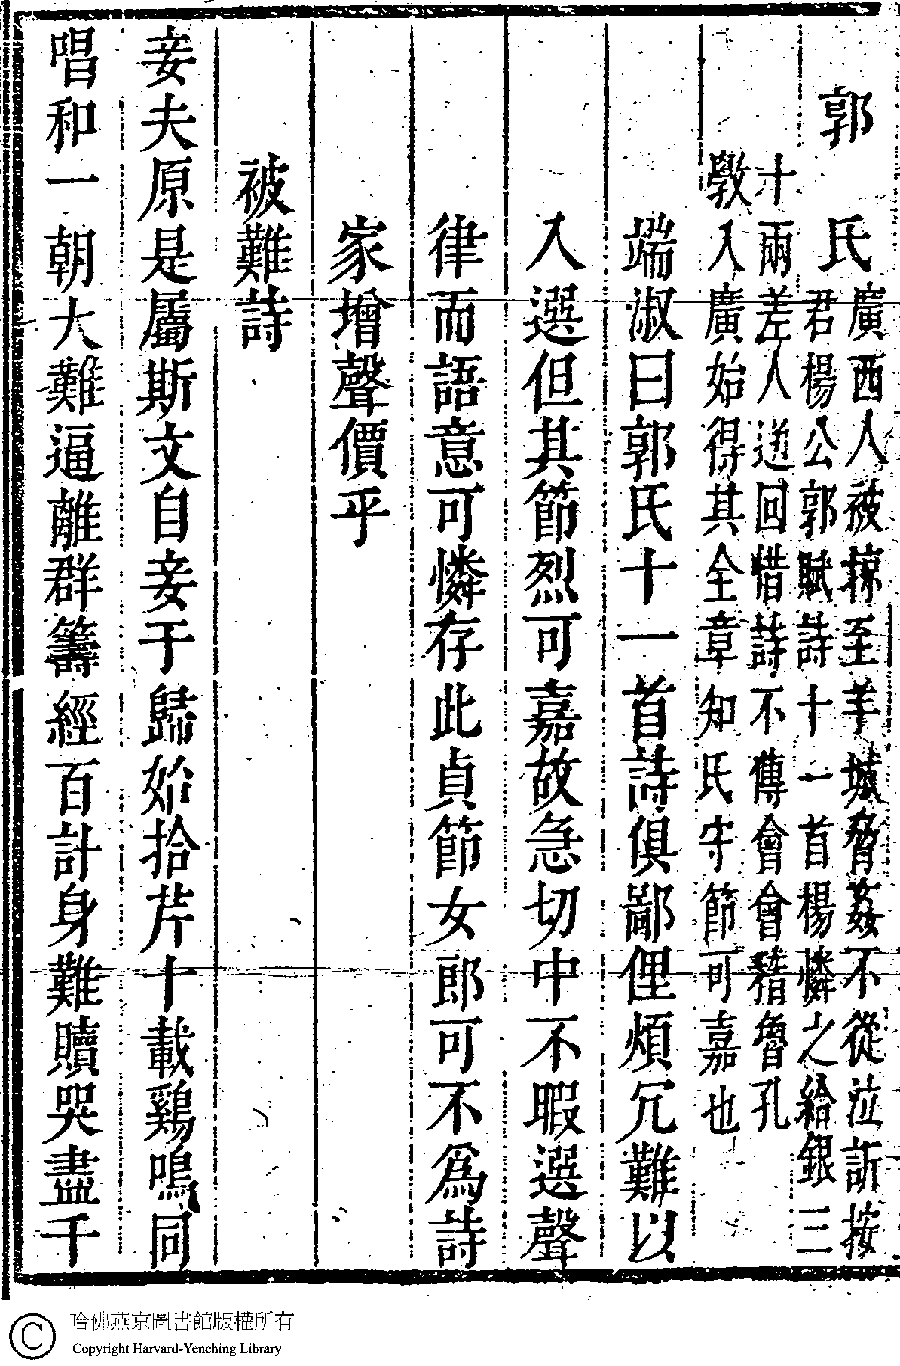 郭氏
廣西人被掠至羊城脅姦不從泣訴按
君楊公郭賦詩十一首楊憐之給銀三
十兩差人送回惜詩不傳會會稽魯孔
敎入廣始得其全章知氏守節可嘉也
端淑曰郭氏十一首詩俱鄙俚煩冗難以
入選但其節烈可嘉故急切中不暇選聲
律而語意可憐存此貞節女郎可不為詩
家增聲價乎
被難詩
妾夫原是屬斯文自妾于歸始拾芹十載鷄鳴同
唱和一朝大難逼離群籌經百計身難贖哭盡千
哈佛燕京圖書館版權所有
© Copyright Harvard-Yenching Library